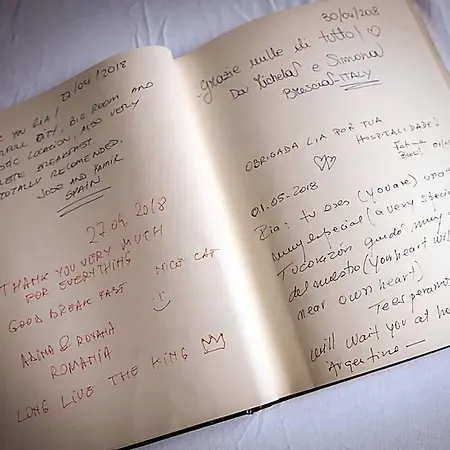 YOU RIA! 27/04/2018
CITY, BIG ROOM AND
LOCATION, ALSO VERY
BREAKFAST.
TOTALLY RECOMENDED.
JOSE AND
SPAIN
27.04.2018
THANK YOU VERY MUCH
FOR EVERYTHING
NICE CAT
GOOD BREAK FAST
:)
ALINA & ROXANA
ROMANIA
LONG LIVE THE KING
30/04/2018
Grazie mille di tutto!
Da Michela e Simona
Brescia ITALY
OBRIGADA LIA POR TUA
HOSPITALIDADE!
01-05-2018
Ria: tu eres (you are) una
muy especial (a very special
Tu corazón quedó muy
del nuestro (your heart will
near own heart)
Te esperamos
will wait you at
Argentine —